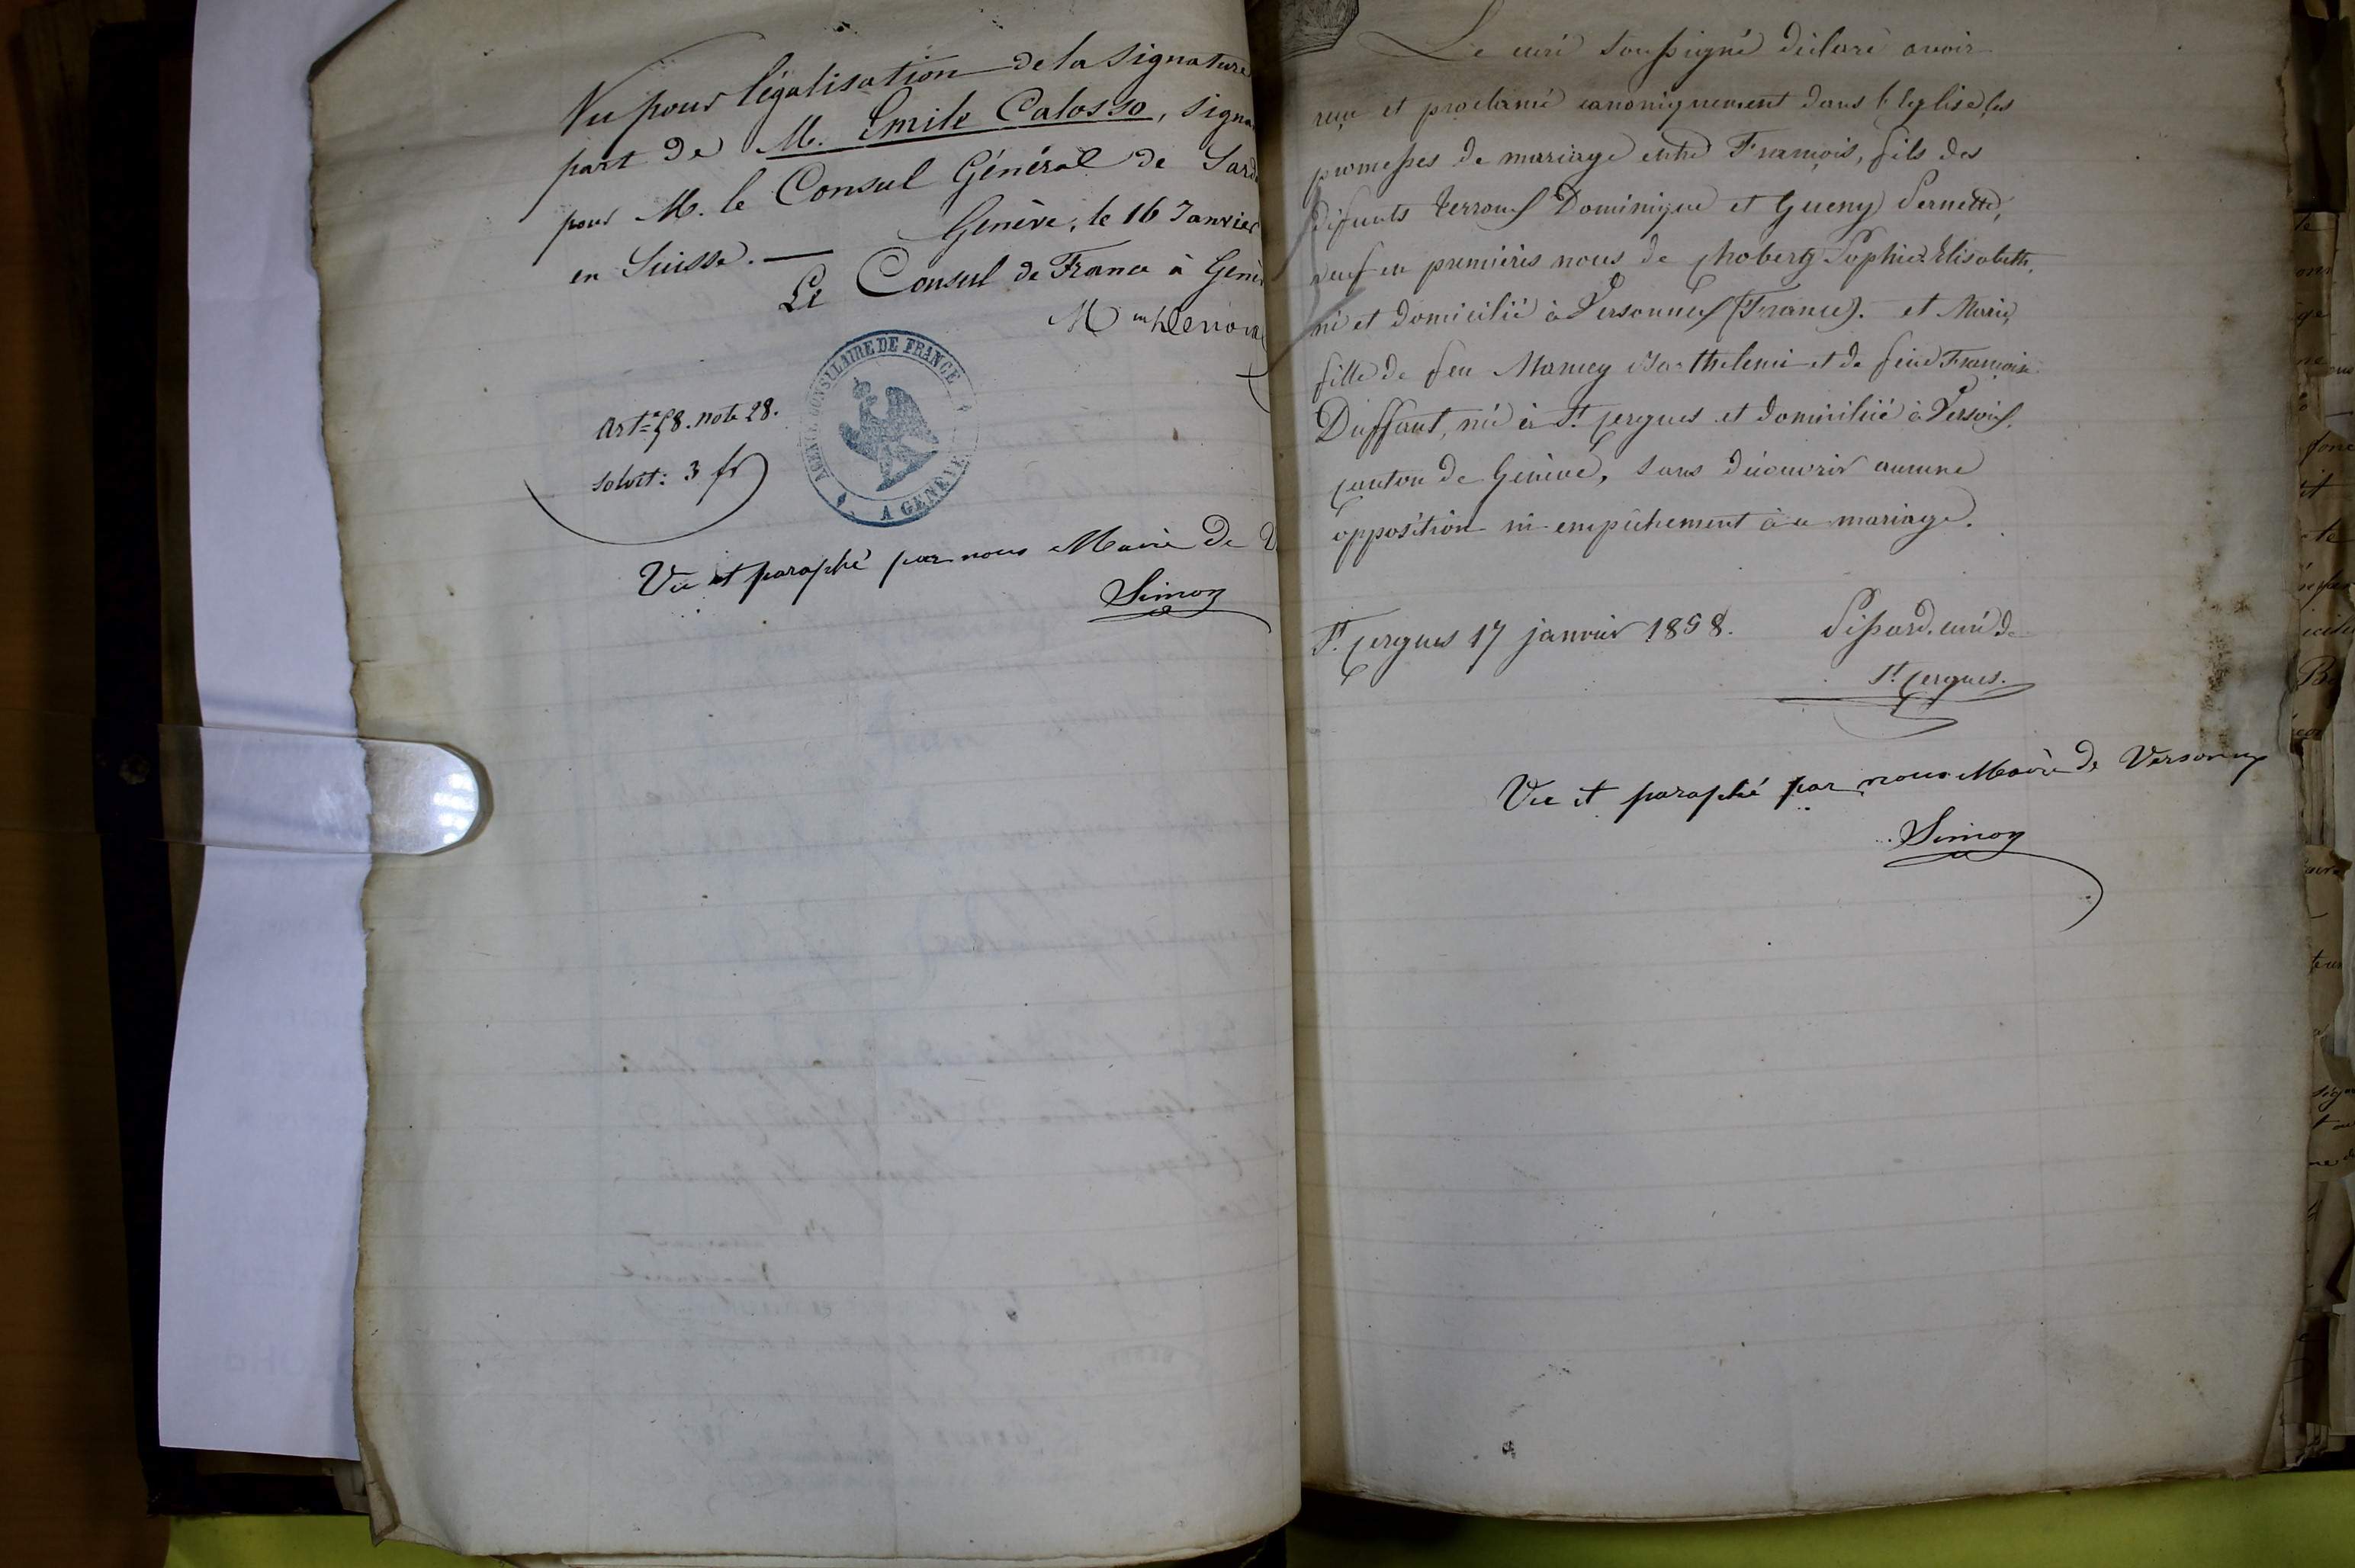 Vu pour légalisation de la Signature
part de M. Emile Calosso, Signa
pour M. le Consul Général de Sard
en Suisse. — Genève, le 16 Janvier
Le Consul de France à Genè
Art. 58. note 28.
solvit: 3 fr
AGENCE CONSULAIRE DE FRANCE
A GENÈVE
Vu et paraphé par nous Maire de V
Simon
Le curé soussigné déclare avoir
reçu et proclamé canoniquement dans l'Eglise les
promesses de mariage entre François, fils des
défunts Dominique et Gueny Pernette,
veuf en premières noces de Sophie Elisabeth,
né et domicilié à Versonnex (France). et Marie,
fille de feu Mamey Barthelemi et de feue Françoise
Duffaut, née à St. Cergues et domiciliée à Versoix,
canton de Genève, sans découvrir aucune
opposition ni empêchement à ce mariage.
St. Cergues 17 janvier 1858. curé de
St. Cergues.
Vu et paraphé par nous Maire de Versonnex
Simon